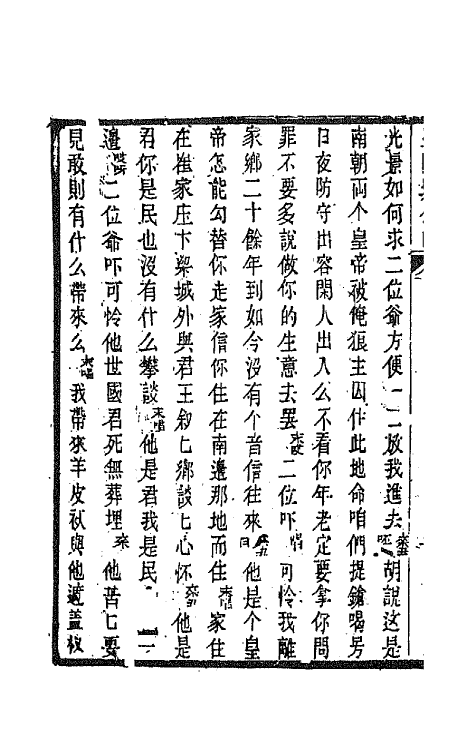 光景如何求二位爺方便一二放我進去胡說这是
南朝兩个皇帝被俺狼主囚在此地命咱們提鎗喝另
日夜防守出容閑人出入么不看你年老定要拿你問
罪不要多說做你的生意去罢二位吓唱可怜我離
家鄉二十餘年到如今沒有个音信往來白他是个皇
帝怎能勾替你走家信你住在南邊那地而住家住
在崔家庄下梁城外與君王叙匕鄉談匕心怀他是
君你是民也沒有什么攀談末唱他是君我是民
邊二位爺吓可怜他世國君死無葬埋他苦匕要
見敢則有什么帶來么末唱我帶來羊皮袄與他遮盖枚